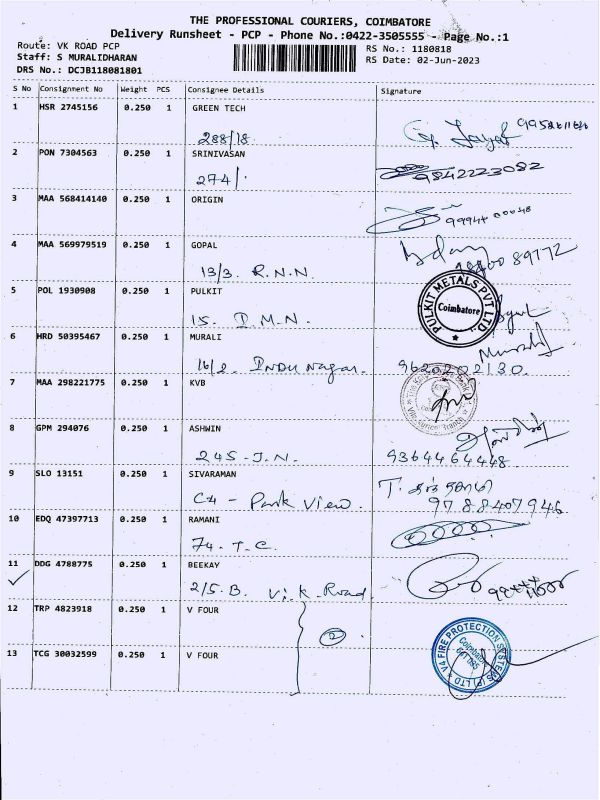 THE PROFESSIONAL COURIERS, COIMBATORE
Delivery Runsheet - PCP - Phone No.:0422-3505555 - Page No.:1
Route: VK ROAD PCP
RS No.: 1180818
Staff: S MURALIDHARAN
RS Date: 02-Jun-2023
DRS No.: DCJB118081801
S No Consignment No Weight PCS Consignee Details Signature
1 HSR 2745156 0.250 1 GREEN TECH
288/18
2 PON 7304563 0.250 1 SRINIVASAN
274/. 9842223082
3 MAA 568414140 0.250 1 ORIGIN
4 MAA 569979519 0.250 1 GOPAL
13/3. R.N.N.
5 POL 1930908 0.250 1 PULKIT
PULKIT METALS PVT LTD
Coimbatore
15. D.M.N.
6 HRD 50395467 0.250 1 MURALI
Murali
16/2. Indu Nagar. 9620202130.
7 MAA 298221775 0.250 1 KVB
8 GPM 294076 0.250 1 ASHWIN
245. J.N. 9364464448
9 SLO 13151 0.250 1 SIVARAMAN
C4 - Park View. 9788407946
10 EDQ 47397713 0.250 1 RAMANI
74. T.C.
11 DDG 4788775 0.250 1 BEEKAY
2/5.B. V.K. Road
12 TRP 4823918 0.250 1 V FOUR
2
13 TCG 30032599 0.250 1 V FOUR
V4 FIRE PROTECTION SYSTEMS (P) LTD
Coimbatore